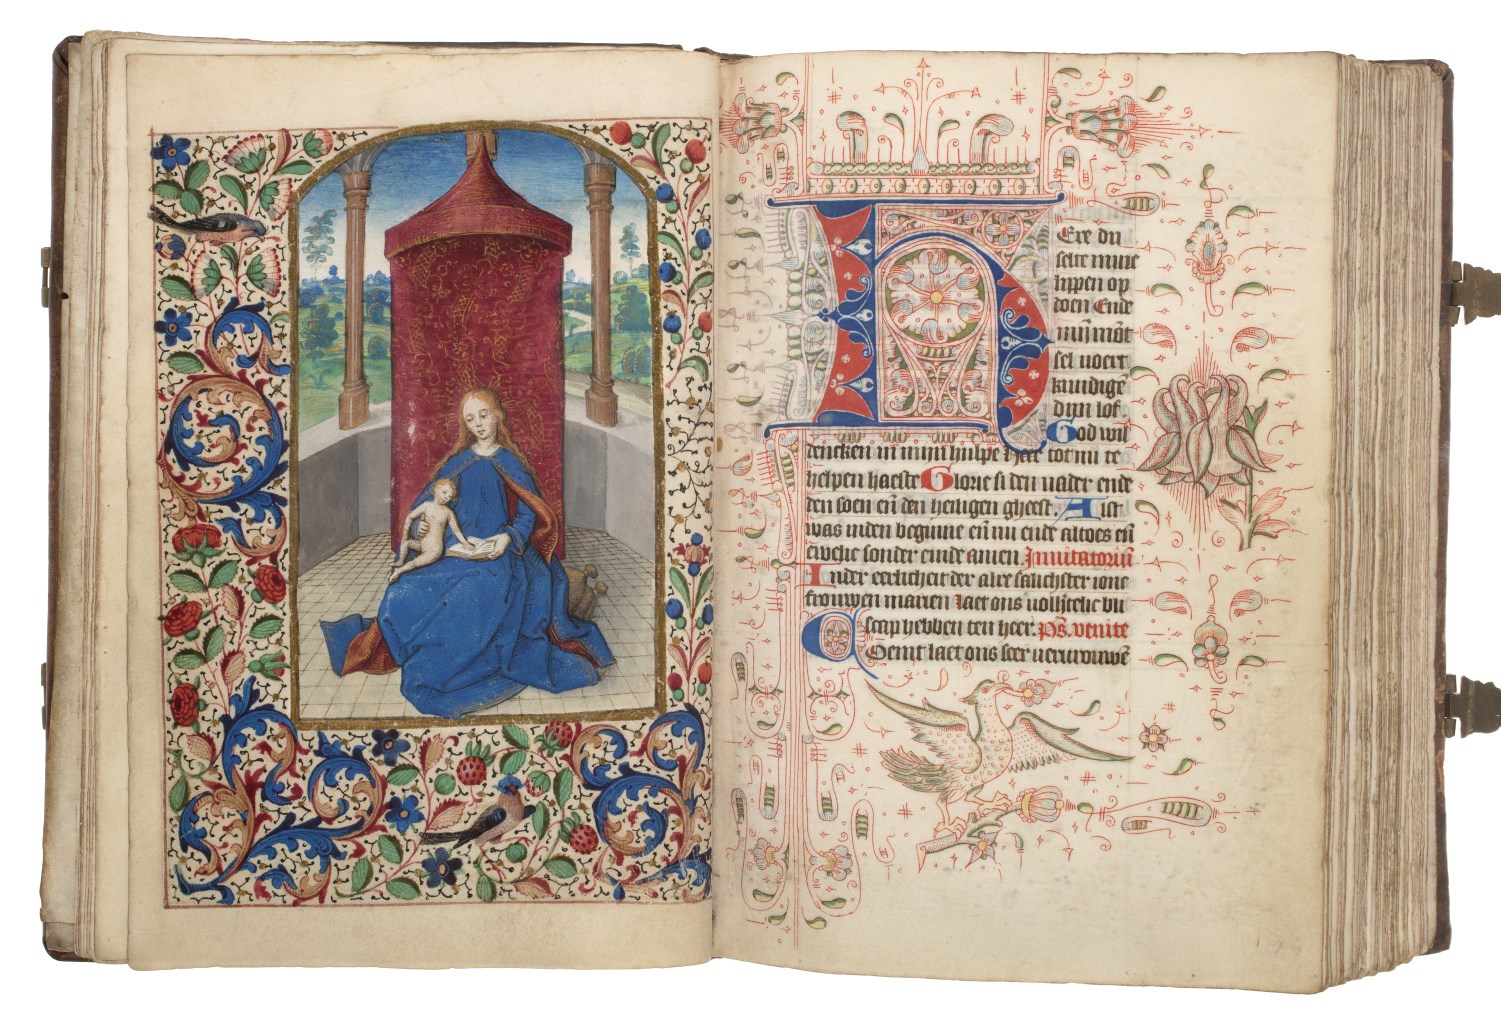 Ere du
selte mine
lippen op
doen Ende
mijn mont
sel voert
kundige
dijn lof
God wil
dencken in mijn hulpe Here tot mi te
helpen haeste Glorie si den vader ende
den soen en̄ den heiligen gheest. Alst
was inden beginne en̄ nu ende altoes en̄
ewelic sonder einde amen. Inuitatoriū
Inder eerlicheit der alre salichster ionc
frouwen marien laet ons volstelic bli
scap hebben ten heer. Ps. venite
Coemt laet ons seer verurouwē